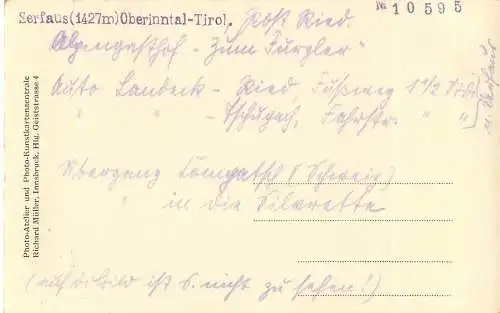 Serfaus (1427m) Oberinntal-Tirol. Post Ried.
№ 10595
Alpengasthof - "Zum Furgler"
Auto Landeck - Ried, Fußweg 1 1/2 Std.
" " - Tschupach, Fahrstr. " "
n. Serfaus
Übergang (Schweiz)
" in die Silvretta
(auf ist S. nicht zu sehen!)
Photo-Atelier und Photo-Kunstkartenzentrale
Richard Müller, Innsbruck, Hlg. Geiststrasse 4